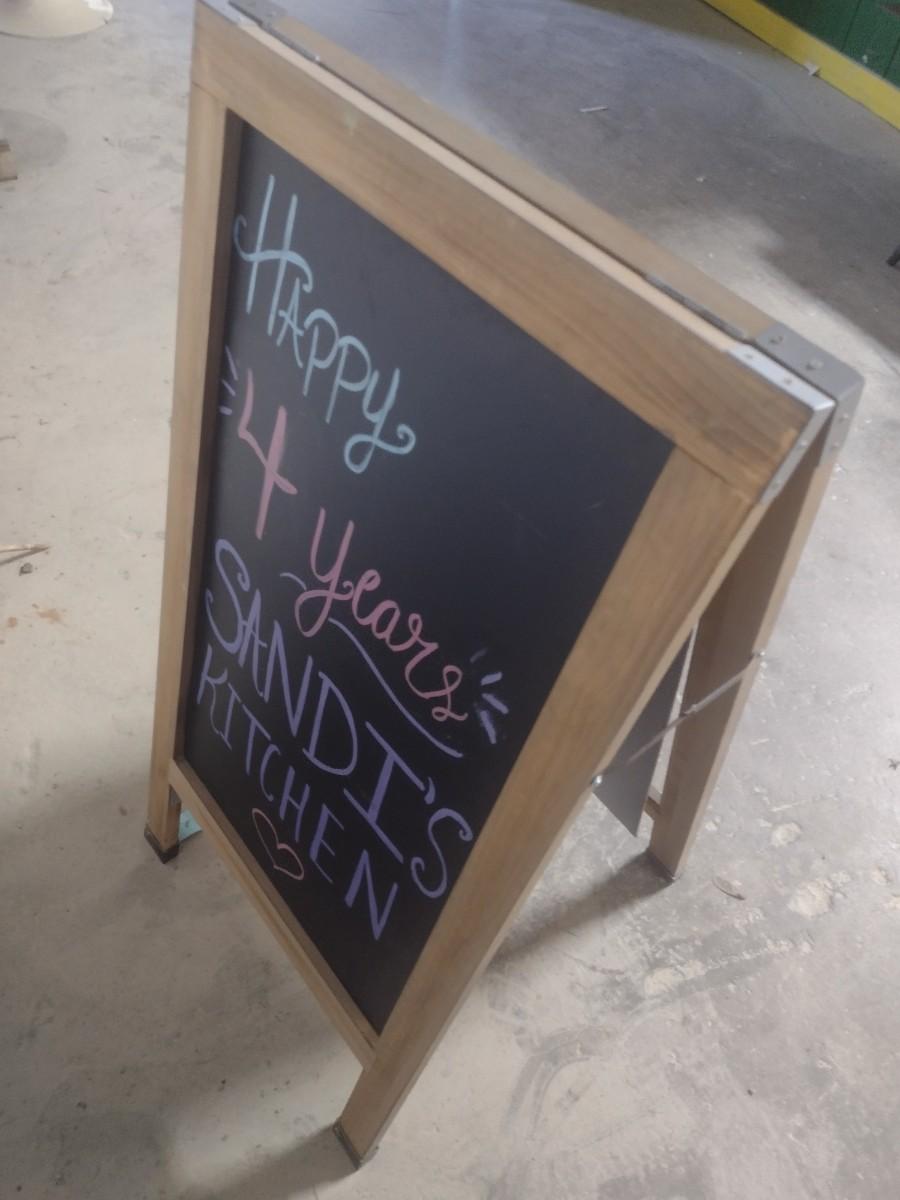 Happy
4 years
SANDI'S
KITCHEN